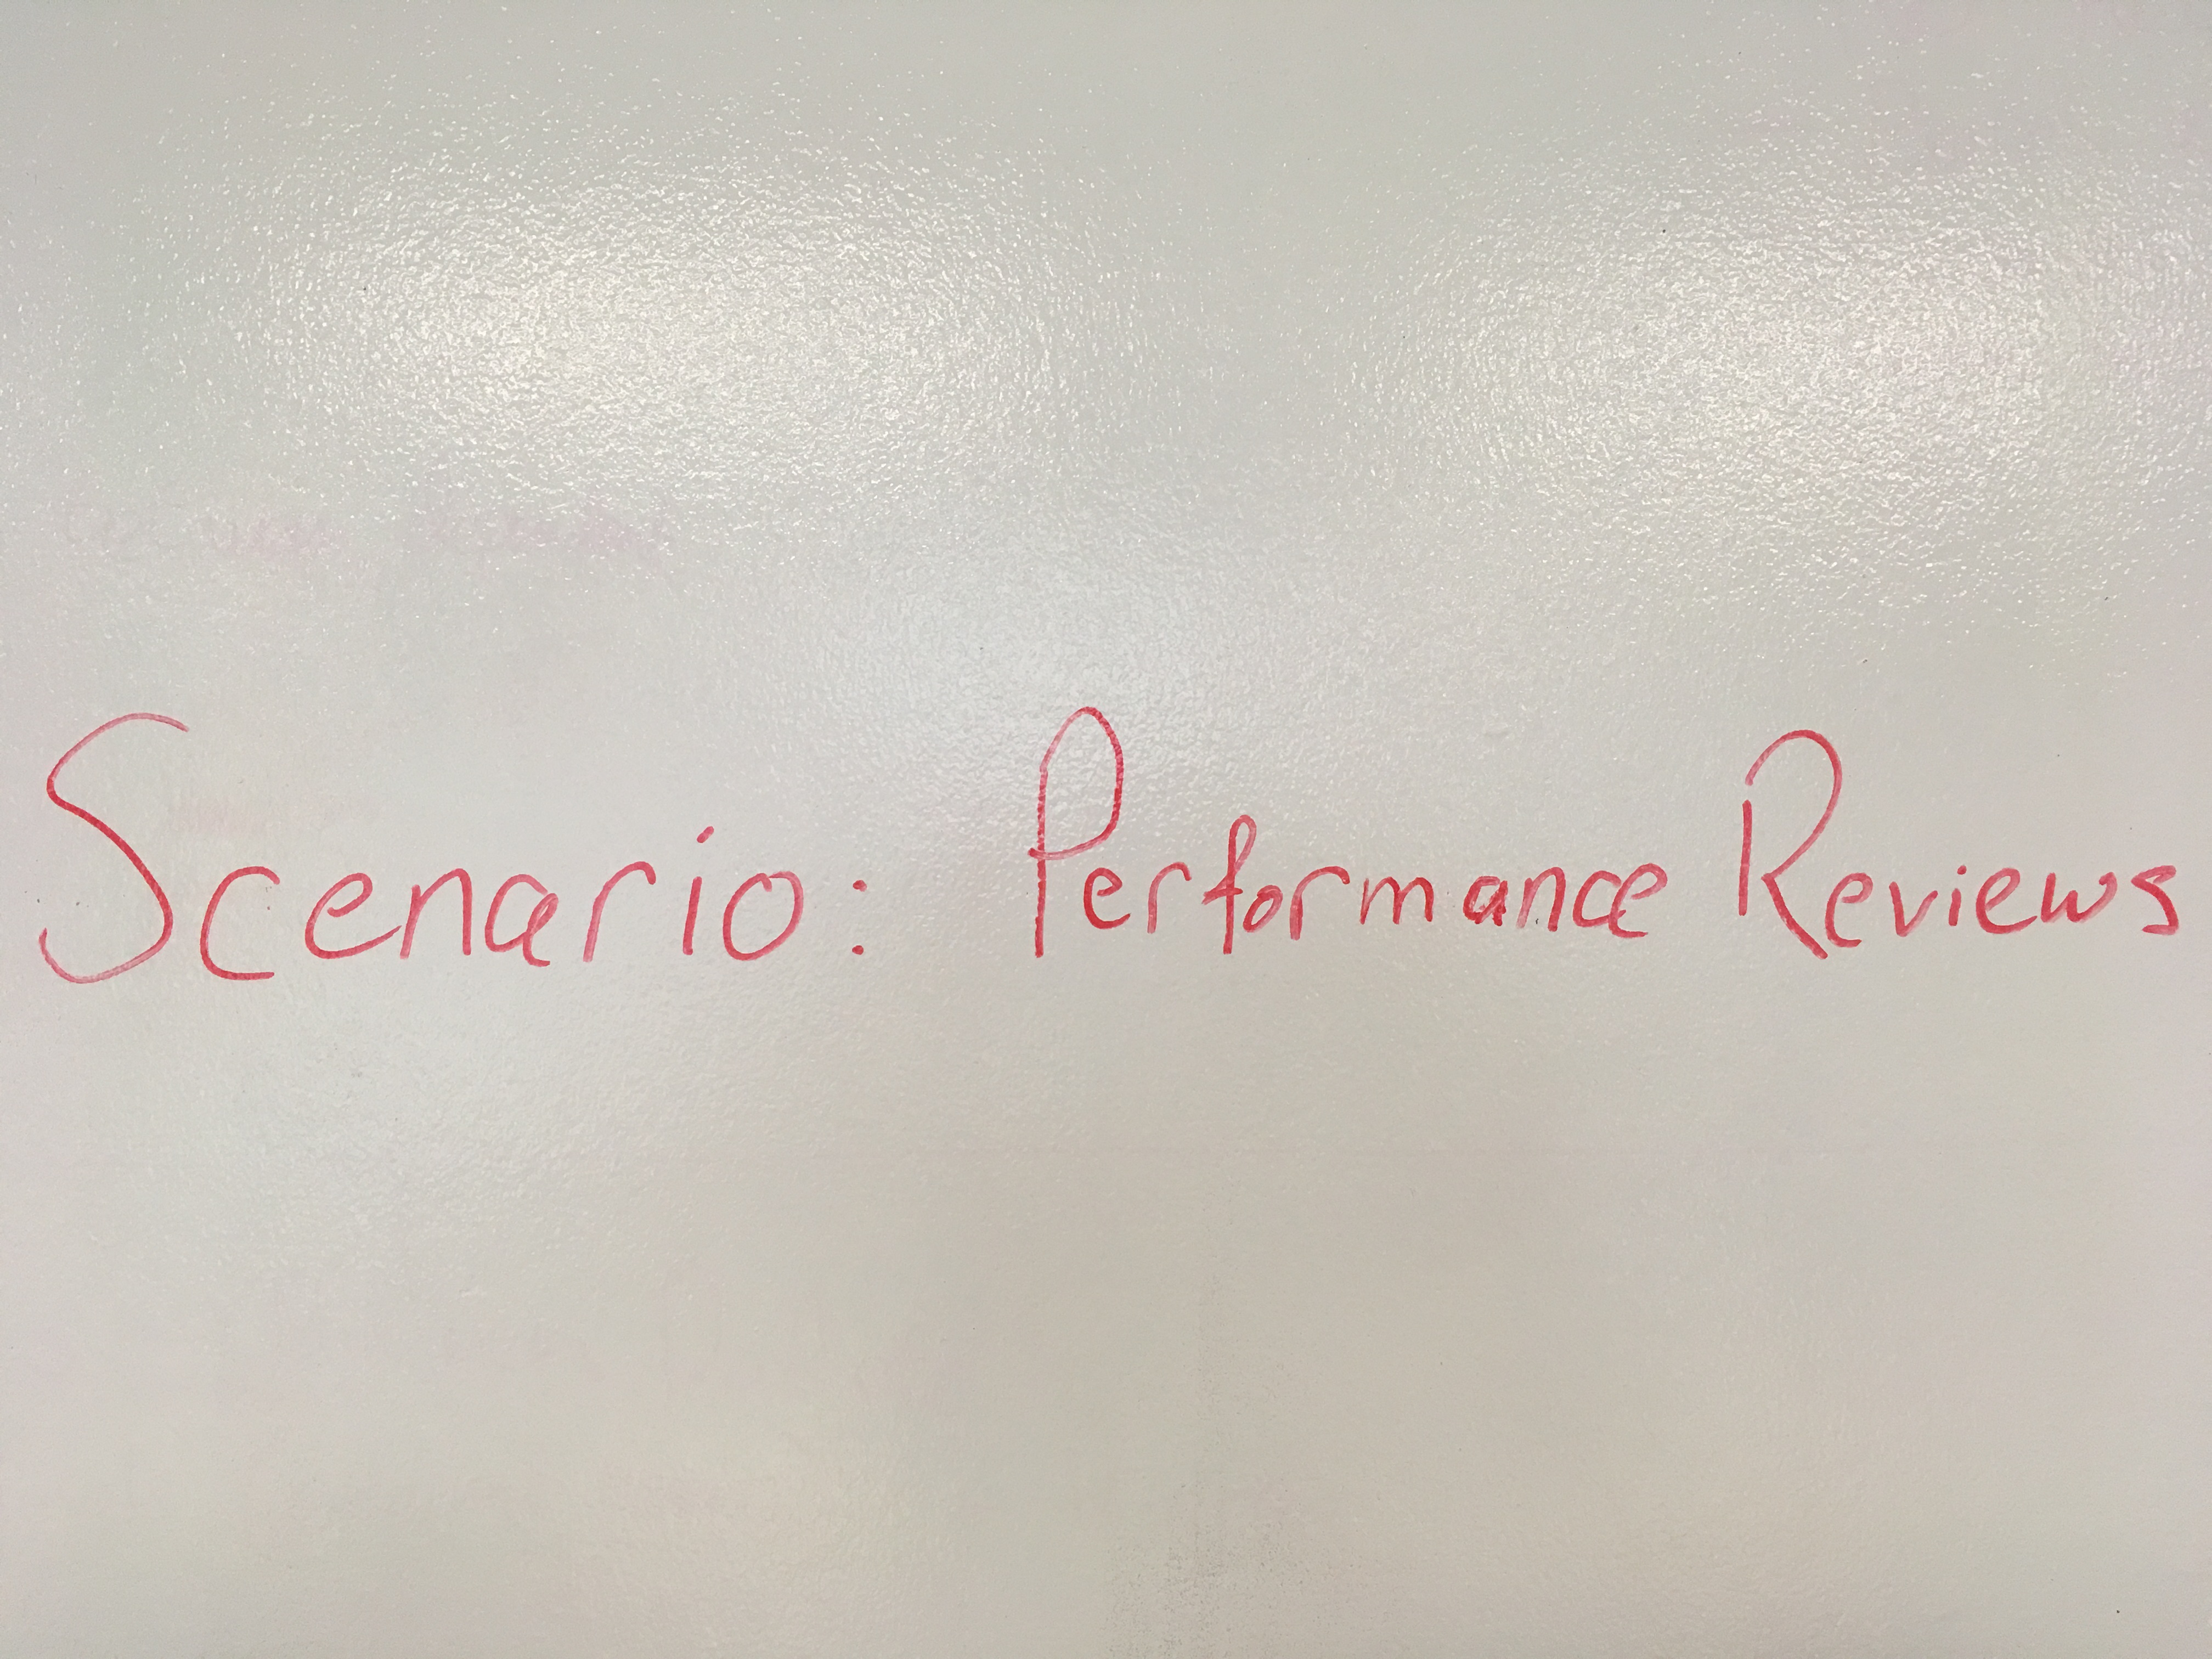 Scenario: Performance Reviews